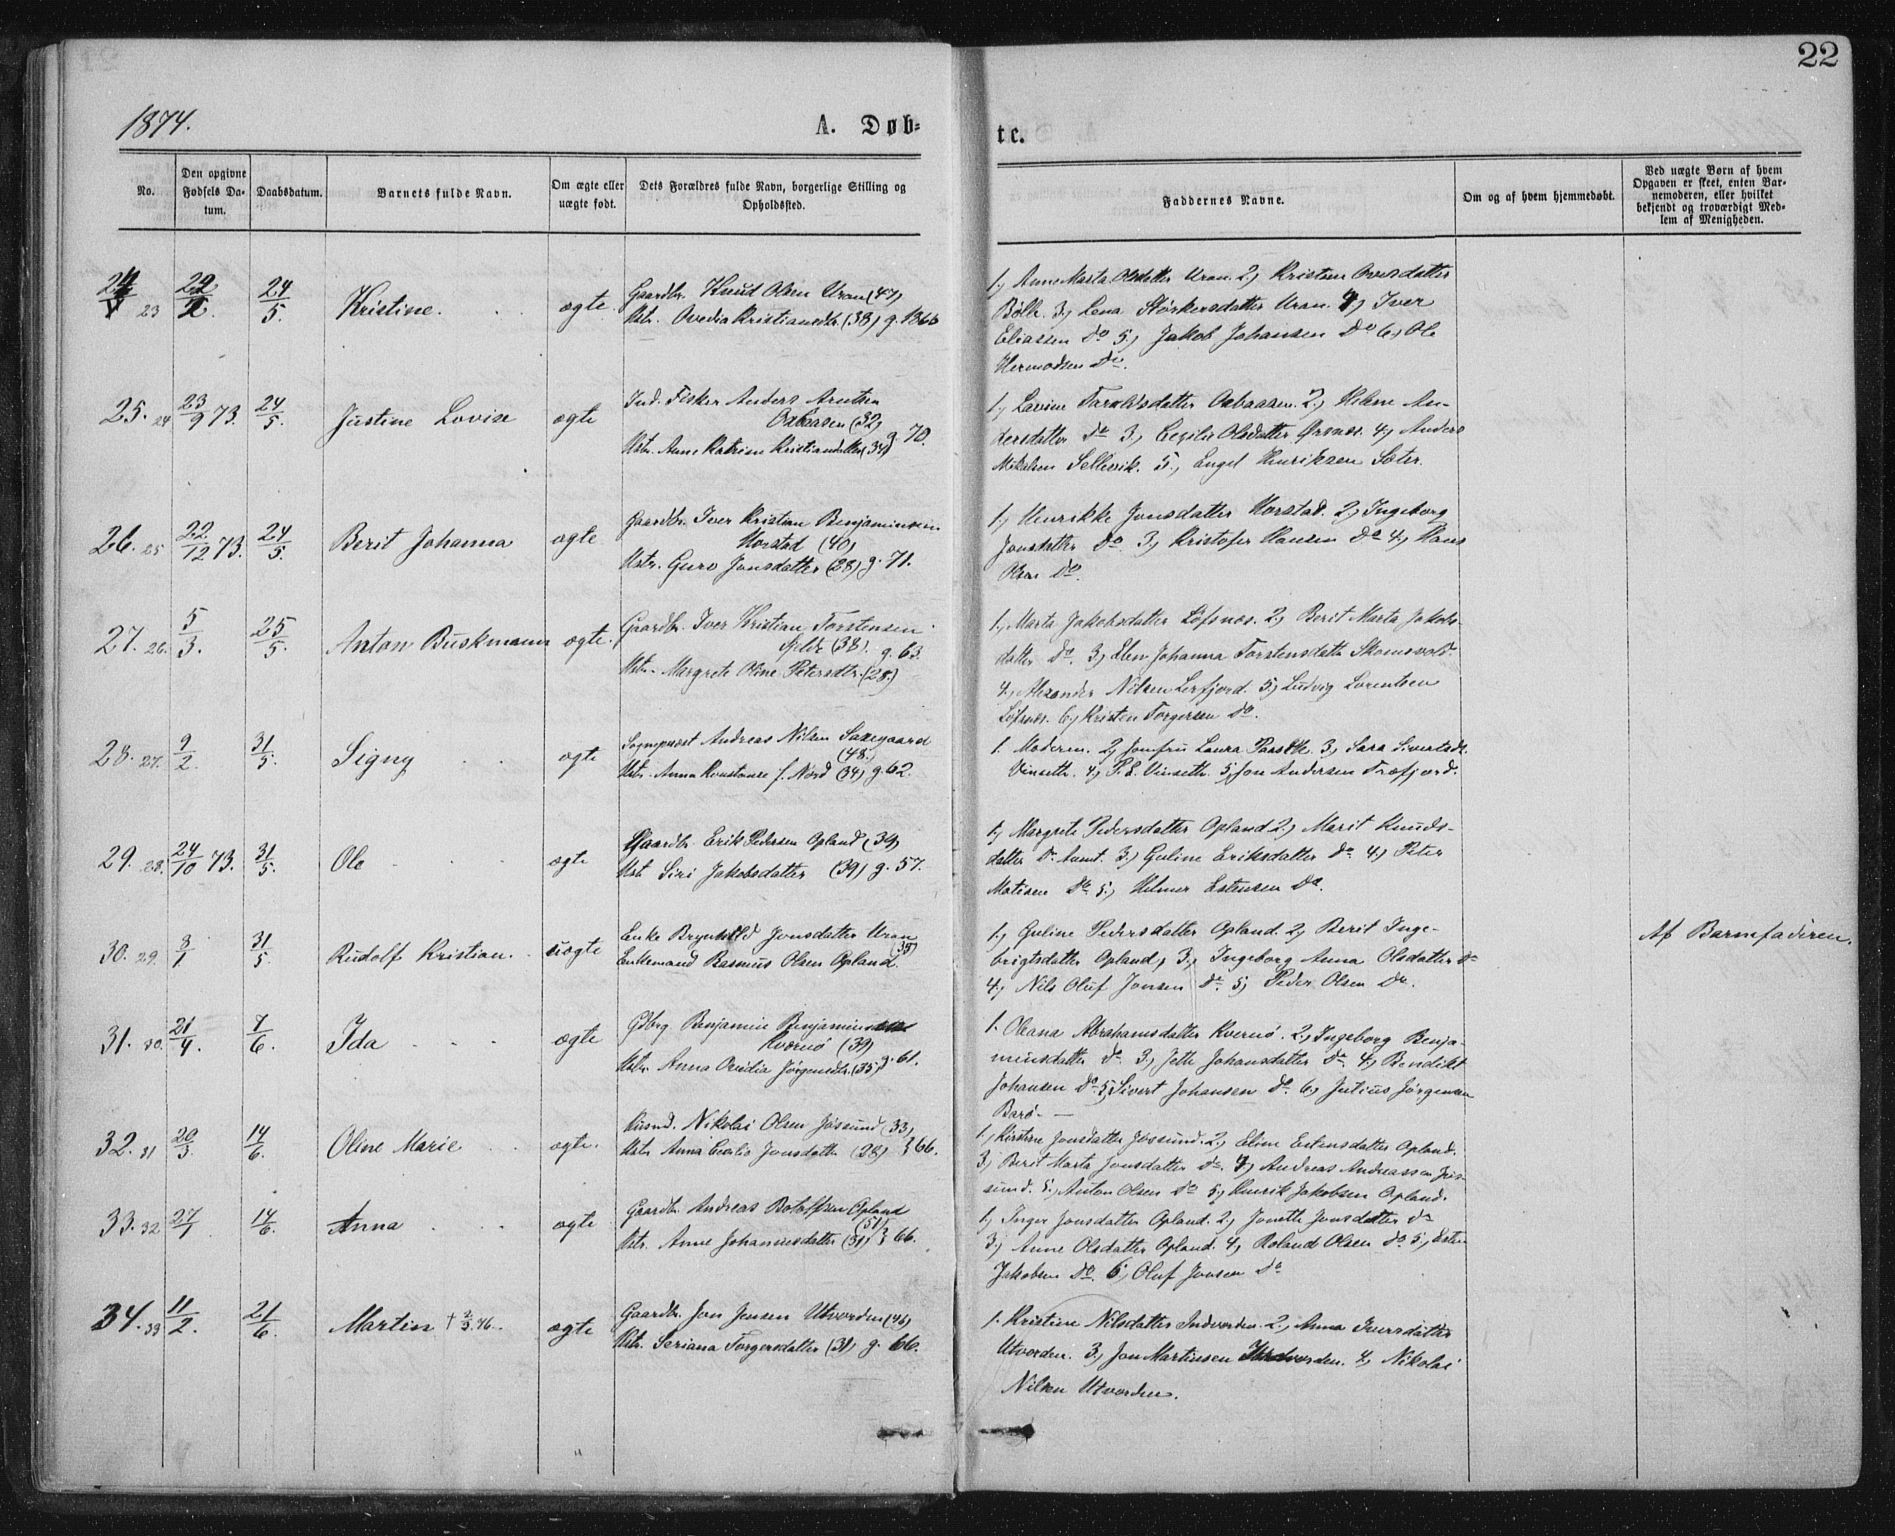 22
1874.
A. Døb-
te.
No.
Den opgivne Fødsels Datum.
Daabsdatum.
Barnets fulde Navn.
Om ægte eller uægte født.
Dets Forældres fulde Navn, borgerlige Stilling og Opholdssted.
Faddernes Navne.
Om og af hvem hjemmedøbt.
Ved uægte Børn af hvem Opgaven er skeet, enten Barnemoderen, eller hvilket bekjendt og troværdigt Medlem af Menigheden.
24 23
24/5.
Kristine.
ægte
Gaardbr. Knud Olsen Uran (47)
Hstr. Ovedia Kristiansdtr. (38) g. 1866
1, Anne Marta Olsdatter Uran. 2, Kristine Ovesdatter
Bølh. 3, Lena Størkersdatter Uran. 4, Iver
Eliassen Do 5, Jakob Johansen Do 6, Ole
Hermodsen Do.
25. 24
23/9 73.
24/5.
Justine Lovise
ægte
Ind. Fisker Anders Arntsen
Oxbaasen (32)
Hstr. Anne Katrine Kristiansdatter (34) g. 70.
1, Lavine Taraldsdatter Oxbaasen. 2, Helene An-
dersdatter do 3, Cecilie Olsdatter Ørsnes. 4, Anders
Mikalsen Sellevik. 5, Engel Henriksen Sæter.
26. 25
22/12 73.
24/5.
Berit Johanna
ægte
Gaardbr. Iver Kristian Benjaminsen
Horstad (40)
Hstr. Guro Jonsdatter (28) g. 71.
1, Henrikke Jonsdatter Horstad. 2, Ingeborg
Jonsdatter Do. 3, Kristofer Hansen Do 4, Hans
Olsen Do.
27. 26.
5/3.
25/5.
Anton Buskmann
ægte.
Gaardbr. Iver Kristian Torstensen
(38). g. 63.
Hstr. Margrete Oline Petersdtr. (28.)
1, Marta Jakobsdatter Løfsnes. 2, Berit Marta Jakobs-
datter Do. 3, Elen Johanna Torstensdatter Skomsvold
4, Alexander Nilsen Lerfjord. 5, Ludvig Lorentsen
Løfsnes. 6, Kristen Torgersen do.
28. 27.
9/2
31/5
Signy
ægte
Sogneprest Andreas Nilsen Saxegaard
(48.)
Hstr. Anna Konstanse f. Nord (34) g. 62.
1. Moderen. 2, Jomfru Laura 3, Sara Sivertsdt.
Vinseth. 4, P. E. Vinseth. 5, Jon Andersen Træfjord.
29. 28.
24/10 73.
31/5.
Ole
ægte
Gaardbr. Erik Pedersen Opland (39)
Hstr. Siri Jakobsdatter (39) g. 57.
1, Margrete Pedersdatter Opland 2, Marit Knuds-
datter Do. 3, Guline Eriksdatter do. 4, Peter
Matisen Do. 5, Helmer Estensen Do.
30. 29.
8/1.
31/5
Rudolf Kristian.
uægte
Enke Brynhild Jonsdatter Uran
(35)
Enkemand Rasmus Olsen Opland.
1, Guline Pedersdatter Opland 2, Berit Inge-
brigtsdatter Opland, 3, Ingeborg Anna Olsdatter do
4, Nils Oluf Jonsen do. 5, Peder Olsen Do.
Af Barnefaderen.
31. 30.
21/4.
7/6.
Ida
ægte
Gdbrg Benjamin Benjaminsen
Kvernø (39)
Hstr. Anna Ovidia Jørgensdtr. (35) g. 61.
1. Oleana Abrahamsdatter Kvernø. 2, Ingeborg Benja-
minsdatter do 3, Jette Johansdatter do 4, Benedikt
Johansen do 5, Sivert Johansen do 6, Julius Jørgensen
Barø.
32. 31
20/3.
14/6.
Oline Marie
ægte.
Husmd. Nikolai Olsen Jøssund (33)
Hstr Anna Cecilia Jonsdatter (28) g 66.
1, Kirstine Jonsdatter Jøssund. 2, Eline Estensdatter Opland.
3, Berit Marta Jonsdatter do. 4, Andreas Andreassen Jøs-
sund. 5, Anton Olsen do 5, Henrik Jakobsen Opland.
33. 32
27/1.
14/6.
Anna
ægte
Gaardbr. Andreas Botolfsen Opland
(51)
Hstr. Anne Johannesdatter (31) g 66.
1, Inger Jonsdatter Opland. 2, Jonetta Jonsdatter do
3, Anne Olsdatter Opland. 4, Roland Olsen do 5, Esten
Jakobsen Do. 6, Oluf Jonsen do
34. 33
11/2.
21/6.
Martin † 2/3.76.
ægte
Gaardbr. Jon Jensen Utvorden (46)
Hstr. Seriana Torgersdatter (31) g. 66.
1. Kristine Nilsdatter Indvorden. 2, Anna Iversdatter
Utvorden. 3, Jon Martinsen Indvorden. 4, Nikolai
Nilsen Utvorden.